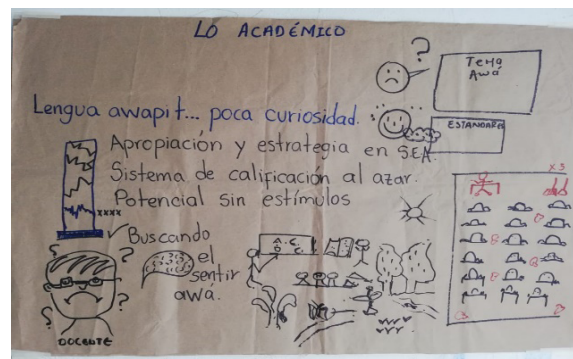 LO ACADÉMICO
?
TEMA
AWÁ
Lengua awapit... poca curiosidad.
ESTANDARES
Apropiación y estrategia en SEA.
Sistema de calificación al azar.
Potencial sin estímulos
x3
xxxx
✓ Buscando
el
sentir
awá.
? ? ? ?
DOCENTE